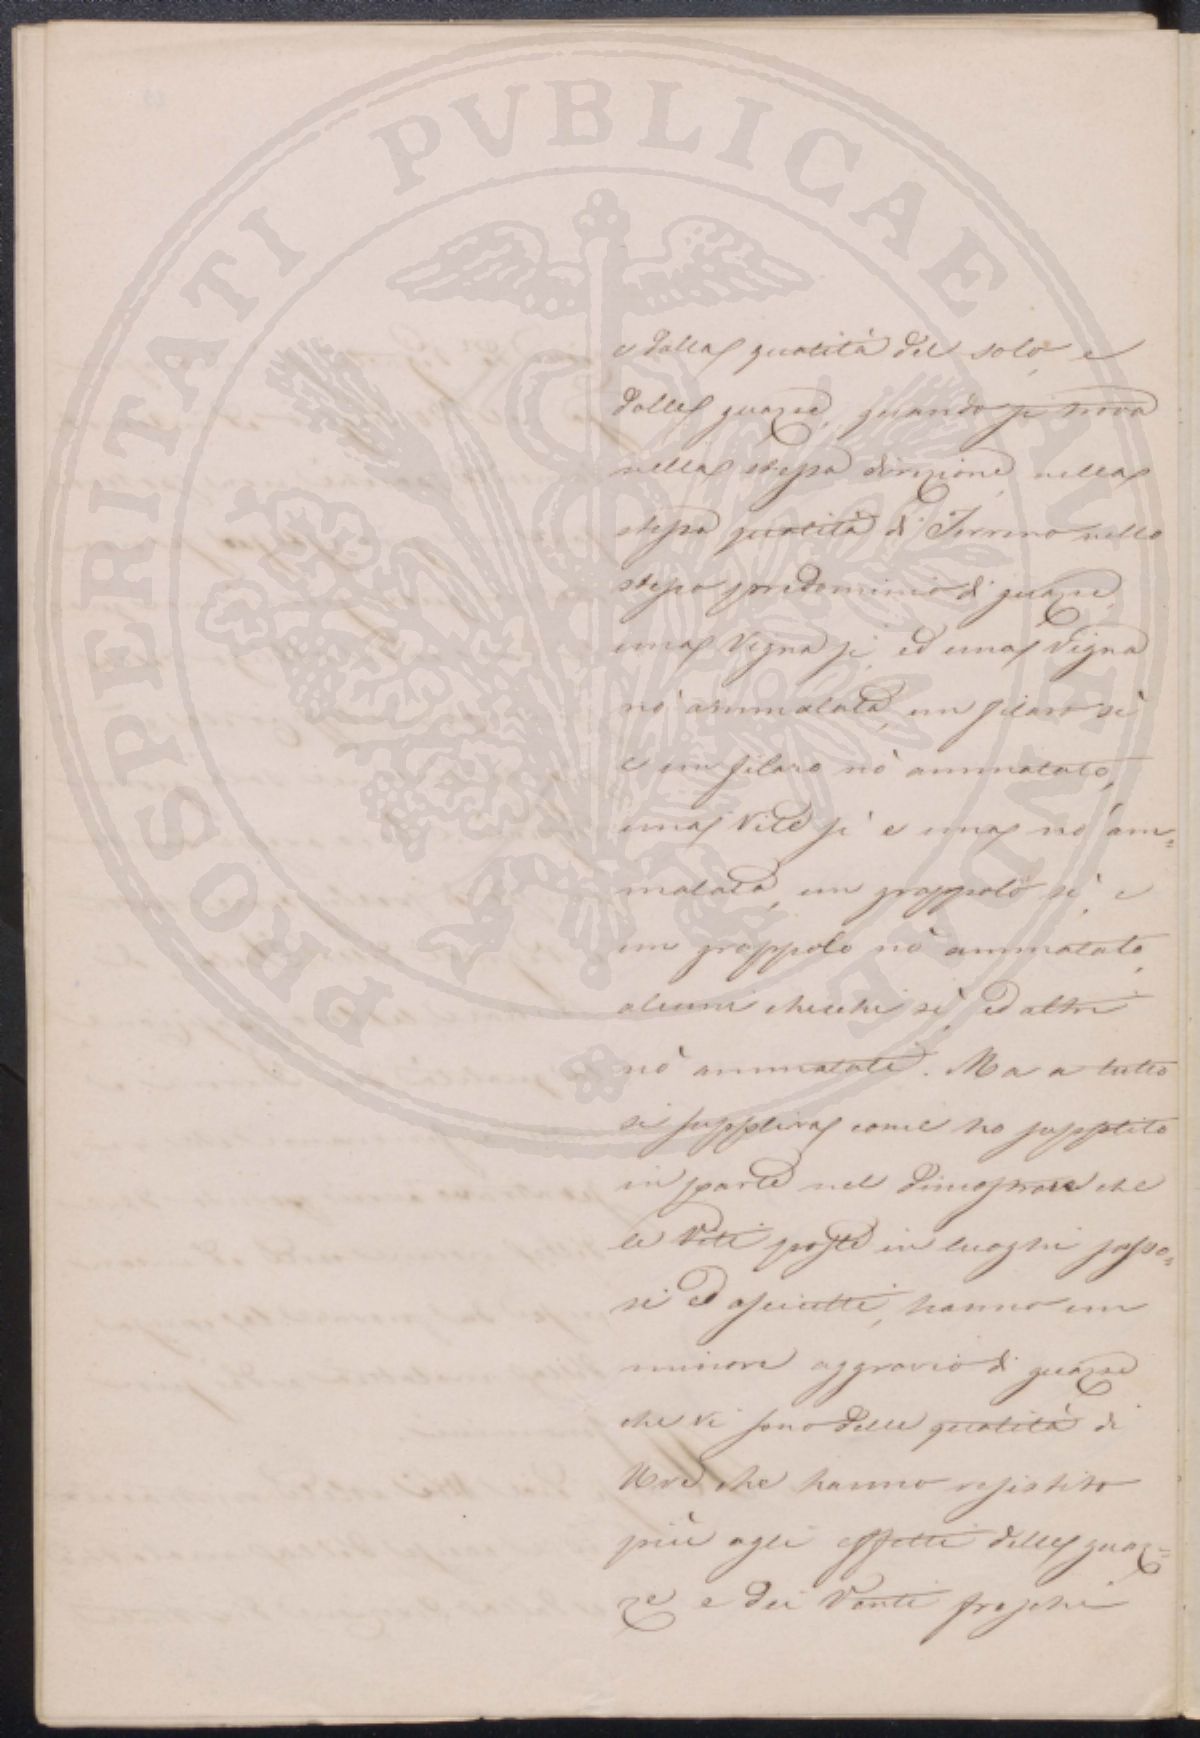 PROSPERITATI PVBLICAE AVGENDAE
e dalla qualità del solo, e
dalle guazze, quando si trova
nella stessa direzione, nella
stessa qualità di Terreno nello
stesso predominio di guazze,
una Vigna si, ed una Vigna
nò ammalata, un filaro sì
e un filaro nò ammalato,
una Vite sì e una nò am=
malata, un grappolo sì, e
un grappolo nò ammalato,
alcuni chicchi sì, ed altri
nò ammalati. Ma a tutto
si supplirà come ho supplito
in parte nel dimostrare che
le Viti poste in luoghi sasso=
si ed asciutti, hanno un
minore aggravio di guazze
che vi sono delle qualità di
Uve che hanno resistito
più agli effetti delle guaz=
ze e dei Venti freschi